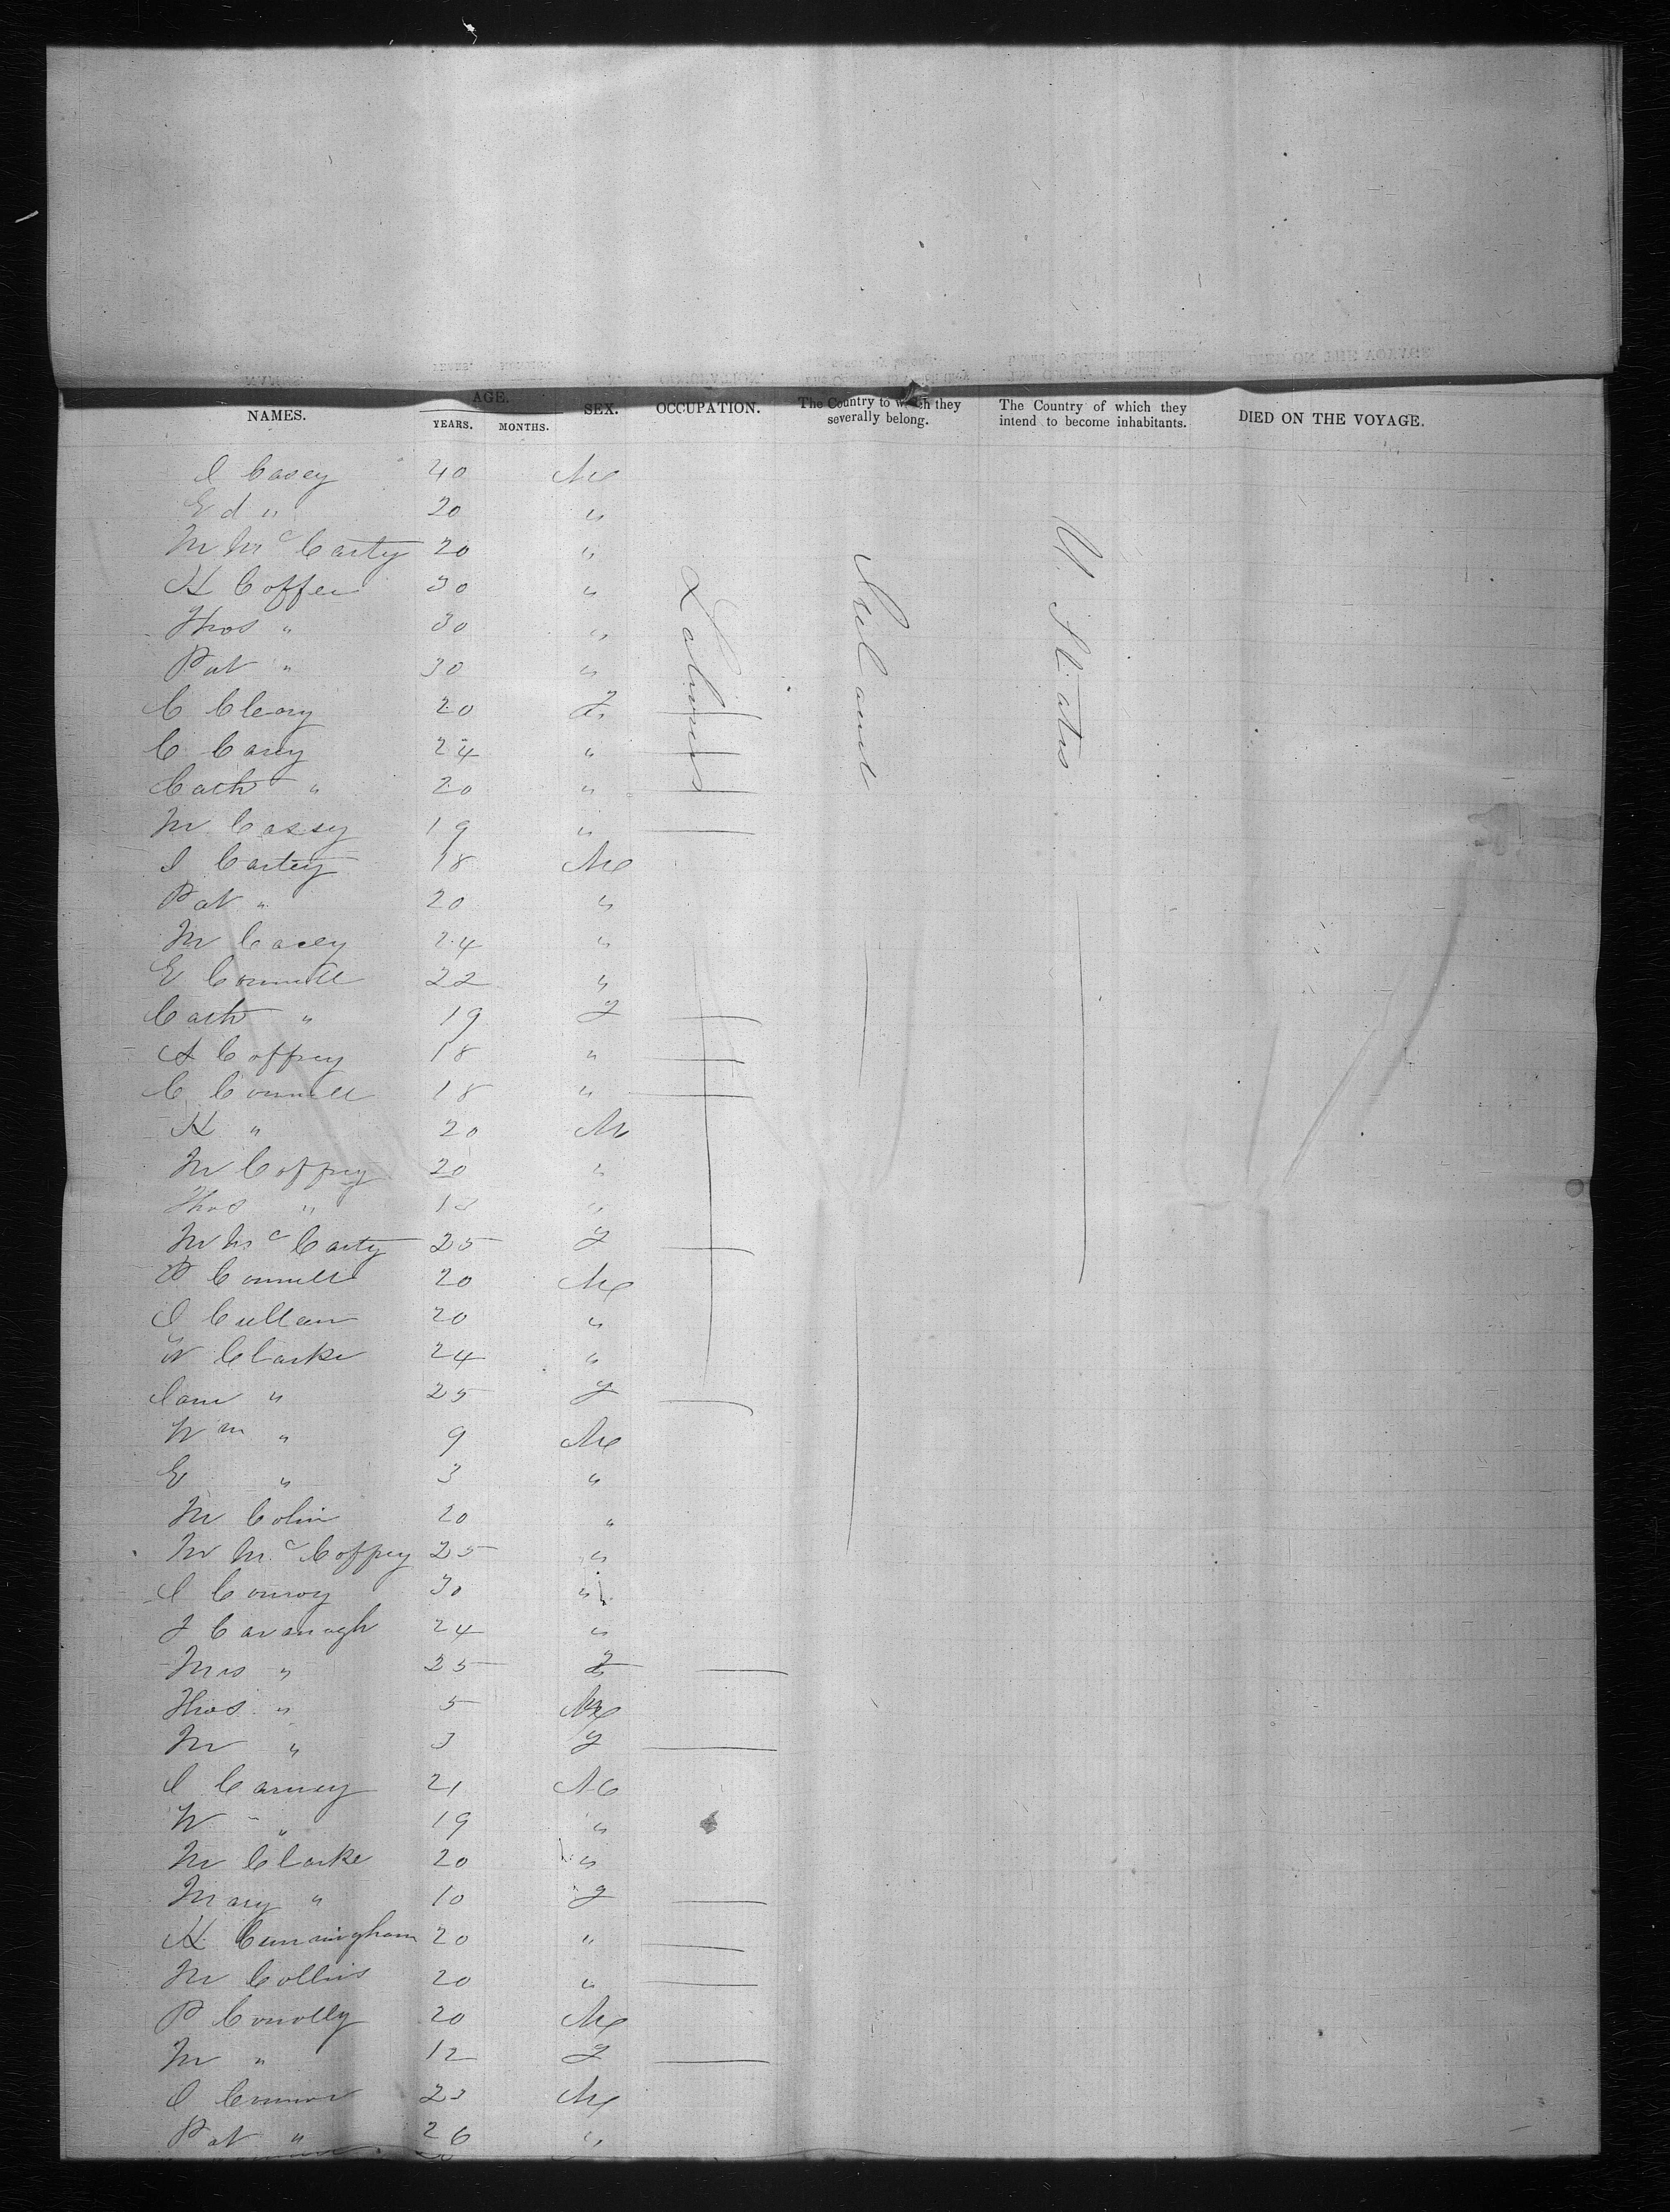 NAMES. AGE. YEARS. MONTHS. SEX. OCCUPATION. The Country to which they severally belong. The Country of which they intend to become inhabitants. DIED ON THE VOYAGE.
Labourers
Ireland
U. States
J Casey 40 M
Ed " 20 "
M McCarty 20 "
H Coffee 30 "
Thos " 30 "
Pat " 30 "
C Cleary 20 F
C Carey 24 "
Cath " 20 "
M Cassy 19 "
J Cartey 18 M
Pat " 20 "
M Casey 24 "
E Connell 22 "
Cath " 19 F
A Coffrey 18 "
C Connell 18 "
H " 20 M
M Coffrey 20 "
Thos " 18 "
M McCarty 25 F
P Connell 20 M
J Cullan 20 "
W Clarke 24 "
Jane " 25 F
Wm " 9 M
E " 3 "
M Colin 20 "
M McCoffrey 25 "
J Conroy 30 "
J Cavanagh 24 "
Mrs " 25 F
Thos " 5 M
M " 3 F
J Carney 21 M
W " 19 "
M Clarke 20 "
Mary " 10 F
H Cunningham 20 "
M Collins 20 "
P Conolly 20 M
M " 12 F
J Connor 23 M
Pat " 26 "